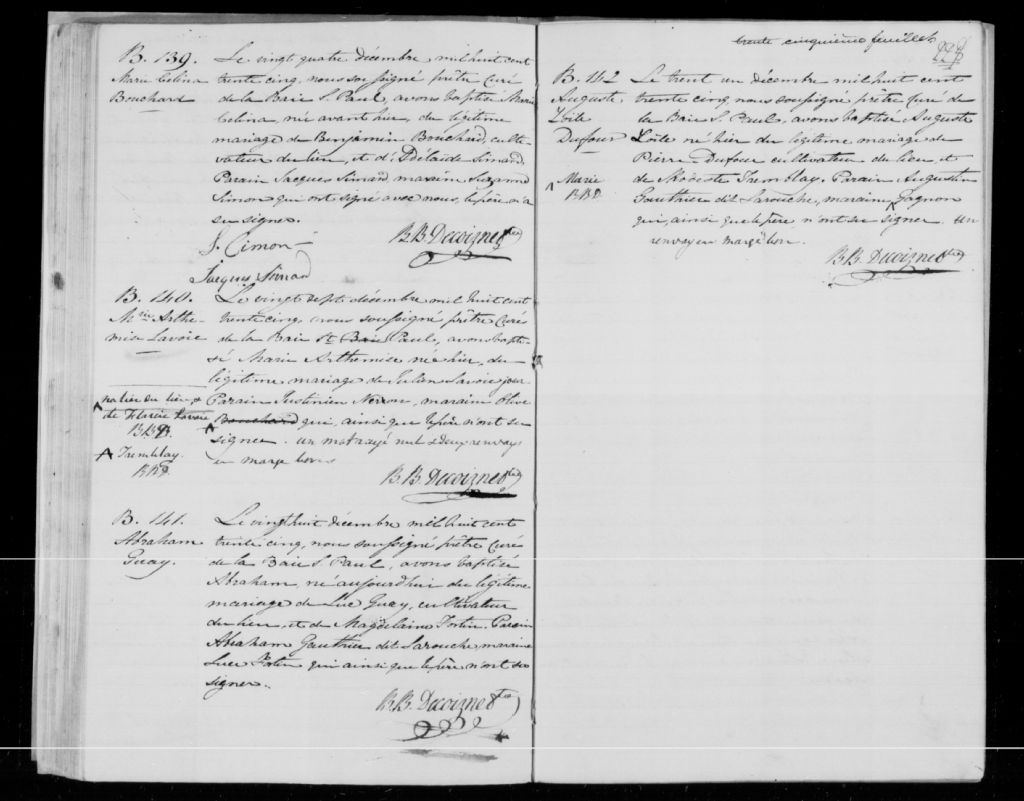 B. 139.
Marie Celina
Bouchard
Le vingt quatre décembre, mil huit cent
trente cinq, nous soussigné prêtre curé
de la Baie S. Paul, avons baptisé Marie
Celina, née avant hier, du légitime
mariage de Benjamin Bouchard, culti-
vateur du lieu, et d'Adélaide Simard
Parain Jacques Simard, maraine Suzanne
Simon qui ont signé avec nous, le père n'a
su signer.
S. Cimon
B.B. Decoigne Ptre
Jacques Simard
B. 140.
Mrie Arthe-
mise Lavoie
Le vingt sept décembre mil huit cent
trente cinq, nous soussigné prêtre curé
de la Baie St Baie Paul, avons bapti-
sé Marie Arthemise née hier, du
légitime mariage de Julien Lavoie jour
nalier du lieu &
de Marie Lavoie
B.B.D.
Tremblay
B.B.D.
Parain Justinien Néron, maraine Olive
Bouchard qui, ainsi que le père n'ont su
signer. un mot rayé nul & deux renvoys
en marge bons
B.B. Decoigne Ptre
B. 141.
Abraham
Guay.
Le vingt huit décembre mil huit cent
trente cinq, nous soussigné, prêtre curé
de la Baie S. Paul, avons baptisé
Abraham, né aujourd'hui du légitime
mariage de Luc Guay, cultivateur
du lieu, et de Magdelaine Fortin. Parain
Abraham Gauthier dit Larouche, maraine
Luce Fortin qui ainsi que le père n'ont su
signer.
B.B. Decoigne Ptre
trente cinquième feuillet
B. 142
Auguste
Zoile
Dufour
Marie
B.B.D.
Le trent un décembre mil huit cent
trente cinq, nous soussigné prêtre curé de
la Baie S. Paul, avons baptisé Auguste
Zoile né hier du légitime mariage de
Pierre Dufour cultivateur du lieu, et
de Modeste Tremblay. Parain Augustin
Gauthier dit Larouche, maraine Gagnon
qui, ainsi que le père, n'ont su signer. un
renvoy en marge bon.
B.B. Decoigne Ptre